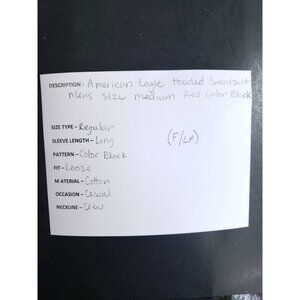 DESCRIPTION - American Eagle Hooded Sweatshirt
Mens Size medium Red Color Block
SIZE TYPE - Regular
SLEEVE LENGTH - Long
(F/LP)
PATTERN - Color Block
FIT - Loose
MATERIAL - Cotton
OCCASION - Casual
NECKLINE - Crew